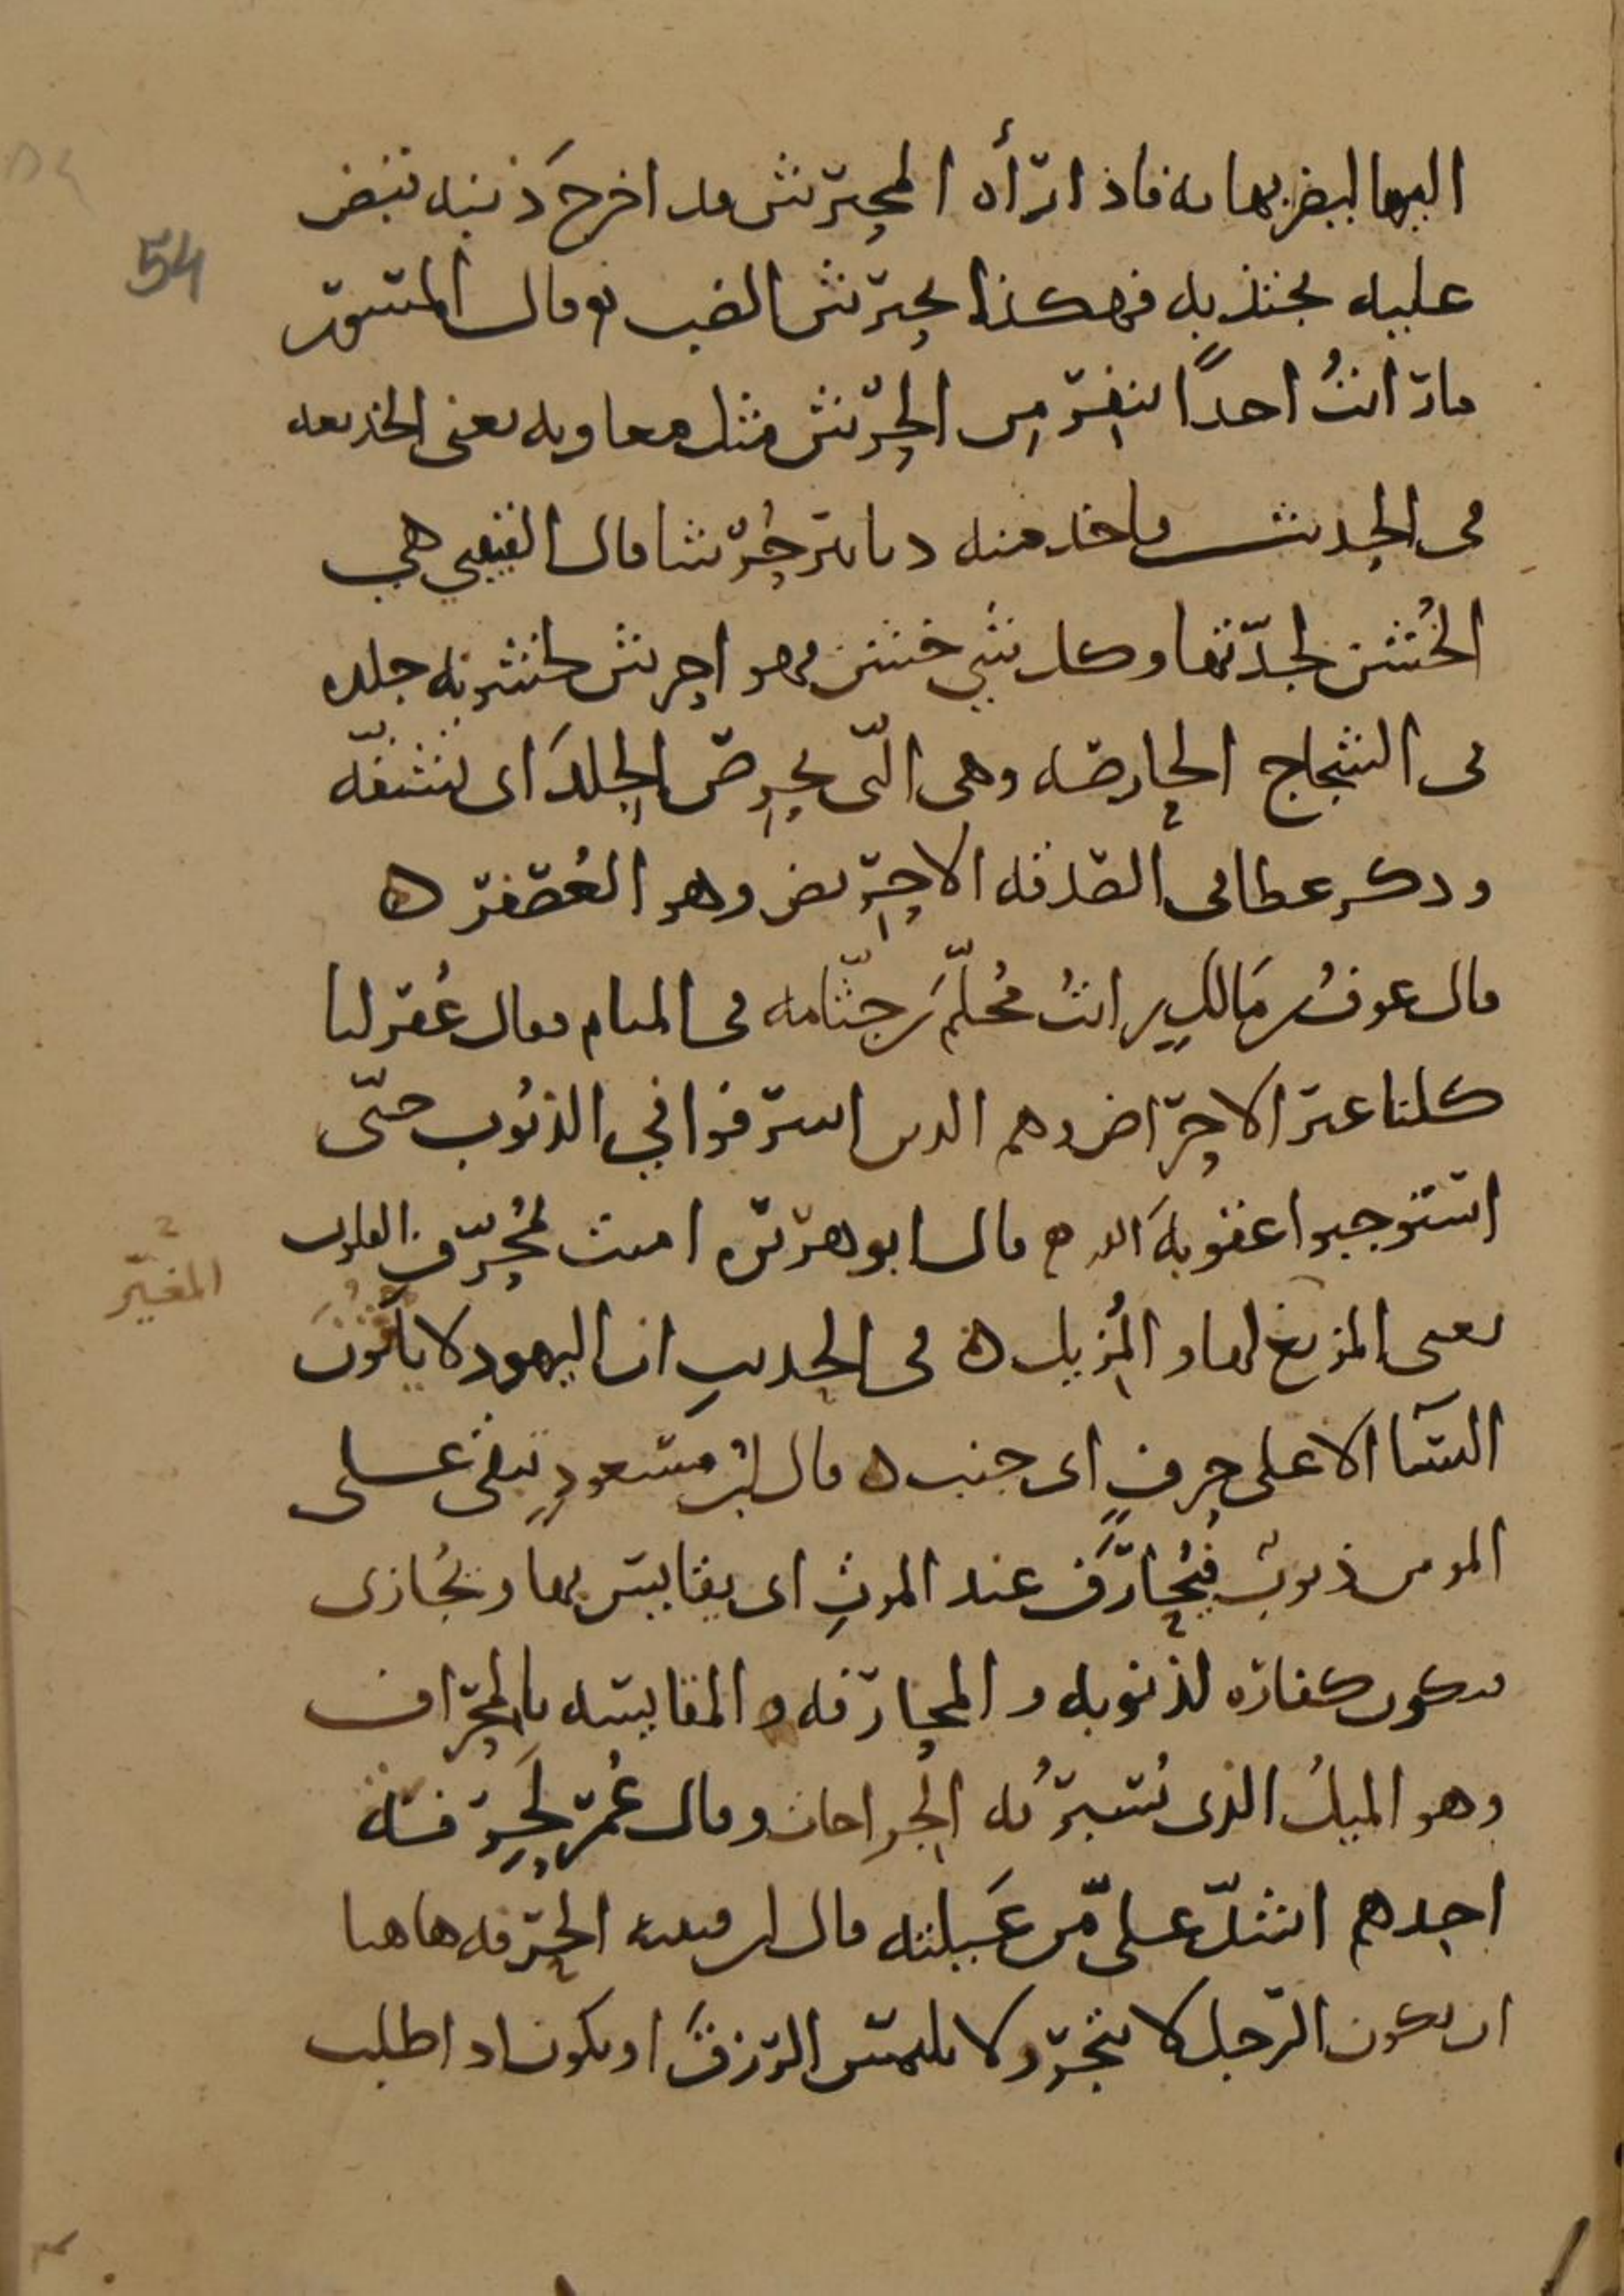 اليها ليضربها به فاذا رأه المحترش قد اخرج ذنبه قبض
عليه يجتذبه فهكذا يحترش الضب ٥ وقال المسور
ما رأيتُ احدًا ينفر من الحرش مثل معاويه يعنى الخديعه
فى الحديث فاخذ منه دنانير حُرشا قال القتيبي هي
الخُشن لجدّتها وكل شي خشن فهو احرش لخشونه جلده
فى الشجاج الحارصه وهى التّى تحرص الجلدَ اى تشقّه
وذكر عطا فى الصدقه الاحريض وهو العُصفر ٥
قال عوف بن مَالكٍ رايتُ مُحلّمَ بن جثّامه فى المنام فقال غُفر لنا
كلنا غير الاحراض وهم الذين اسرفوا في الذنوب حتّى
استوجبوا عقوبهَ الله ٥ قال ابو هريره امنت بمُحرّف القلوب
يعنى المزيغ لها والمُزيل ٥ فى الحديثِ ان اليهود لا ياتُونَ
النسآ الا على حرفٍ اى جنب ٥ قال ابن مسعودٍ تبقى على
المومن ذنوب فيُحارَف عند الموتِ اى يقايس بها ويُجازى
فيكون كفاره لذنوبه والمحارفه والمقايسه بالمحراف
وهو الميلُ الذى تُسبرُ به الجراحات وقال عُمر لَحِرفه
احدهم اشدّ على من عَيلته قال ابن قتيبه الحرفه هاهنا
ان يكون الرجل لا يتجر ولا يلتمس الرزقَ او يكون اذا طلب
المغيّر
54